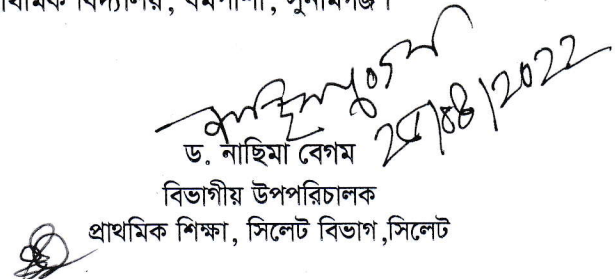 প্রাথমিক বিদ্যালয়, ধর্মপাশা, সুনামগঞ্জ।
ড. নাছিমা বেগম
বিভাগীয় উপপরিচালক
প্রাথমিক শিক্ষা, সিলেট বিভাগ,সিলেট